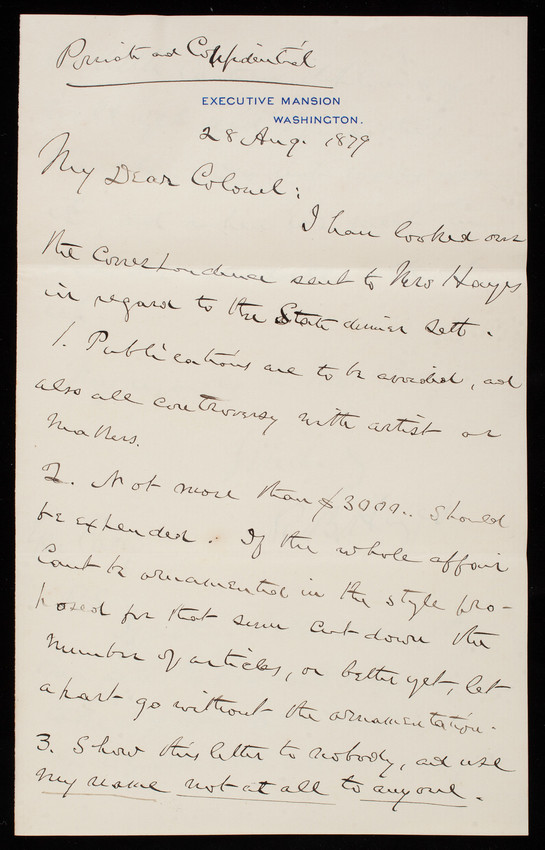 Private and Confidential
EXECUTIVE MANSION
WASHINGTON.
28 Aug. 1879
My Dear Colonel:
I have looked over
the correspondence sent to Mrs Hayes
in regard to the State dinner sett.
1. Publications are to be avoided, and
also all controversy with artist or
makers.
2. Not more than $3000.. should
be expended. If the whole affair
cant be ornamented in the style pro-
posed for that sum cut down the
number of articles, or better yet, let
a part go without the ornamentation.
3. Show this letter to nobody, and use
my name not at all to anyone.